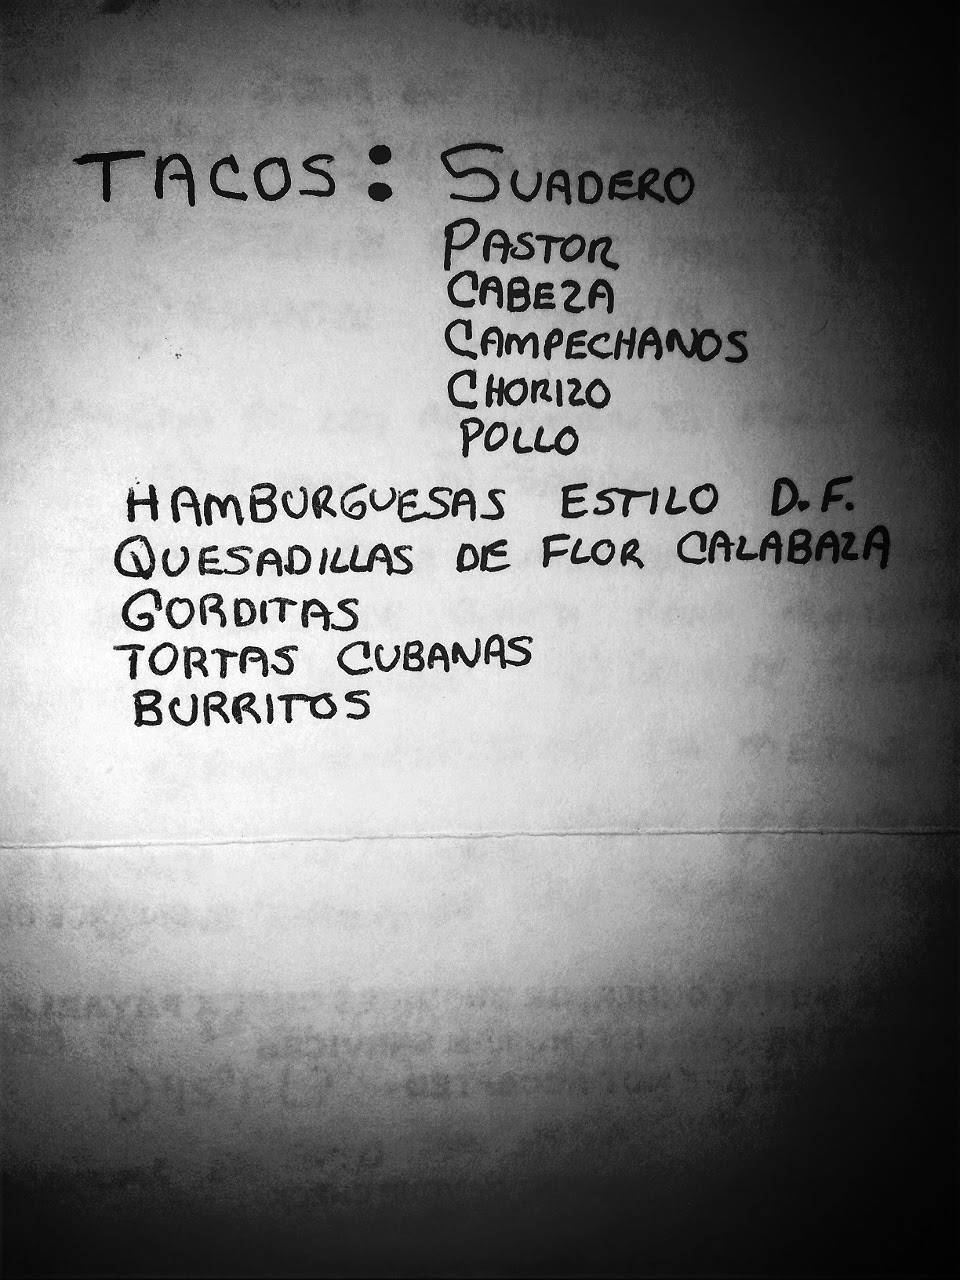 TACOS: SUADERO
PASTOR
CABEZA
CAMPECHANOS
CHORIZO
POLLO
HAMBURGUESAS ESTILO D.F.
QUESADILLAS DE FLOR CALABAZA
GORDITAS
TORTAS CUBANAS
BURRITOS